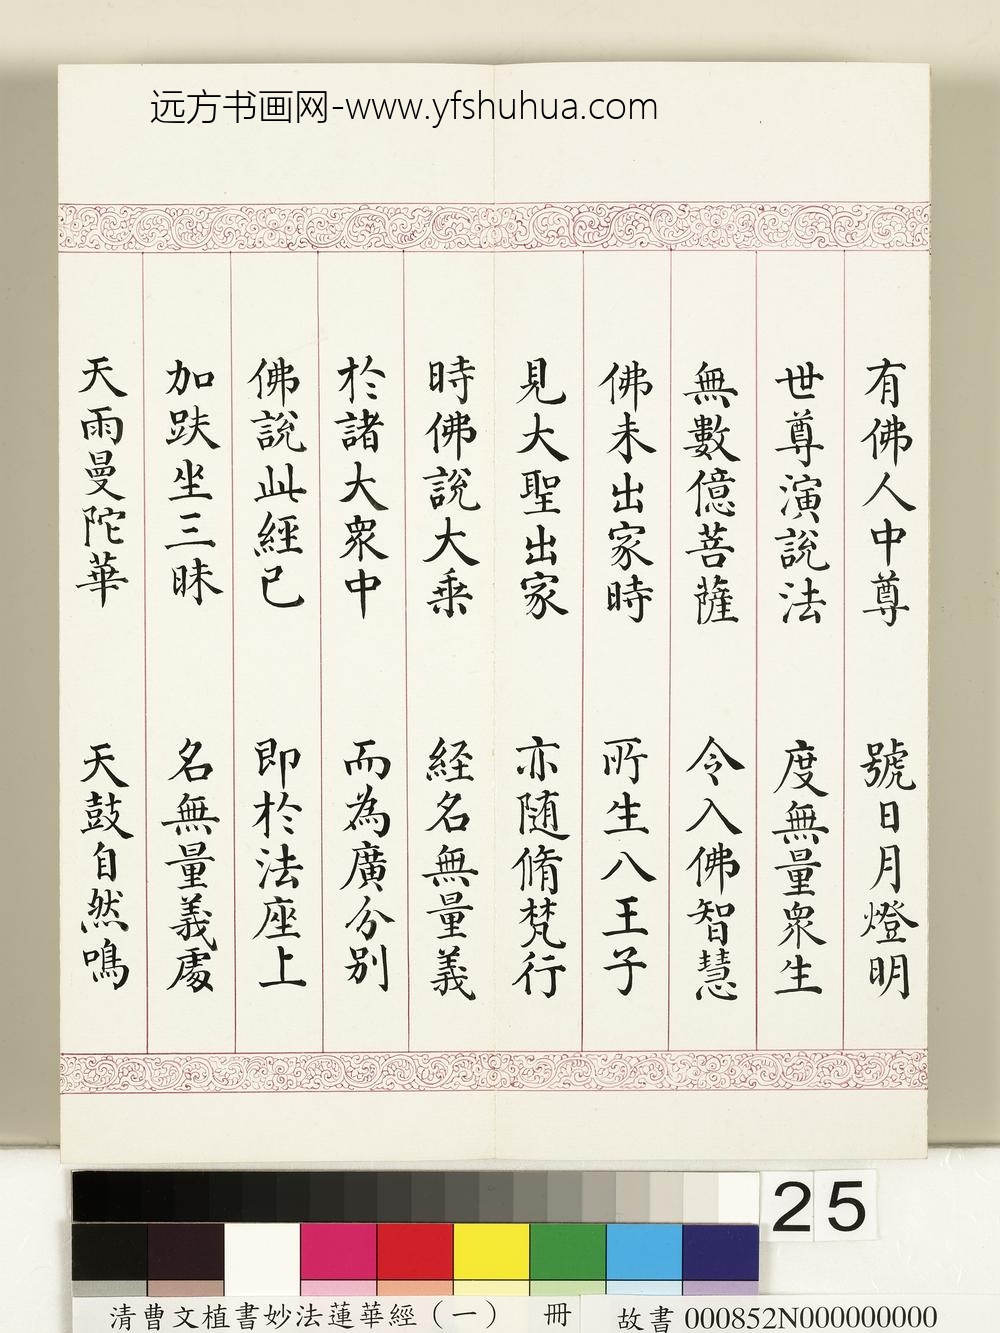 远方书画网-www.yfshuhua.com
有佛人中尊 號日月燈明
世尊演說法 度無量眾生
無數億菩薩 令入佛智慧
佛未出家時 所生八王子
見大聖出家 亦随脩梵行
時佛說大乗 経名無量義
於諸大眾中 而為廣分別
佛說此經已 即於法座上
加趺坐三昧 名無量義處
天雨曼陀華 天鼓自然鳴
25
清曹文植書妙法蓮華經（一） 冊 故書000852N000000000